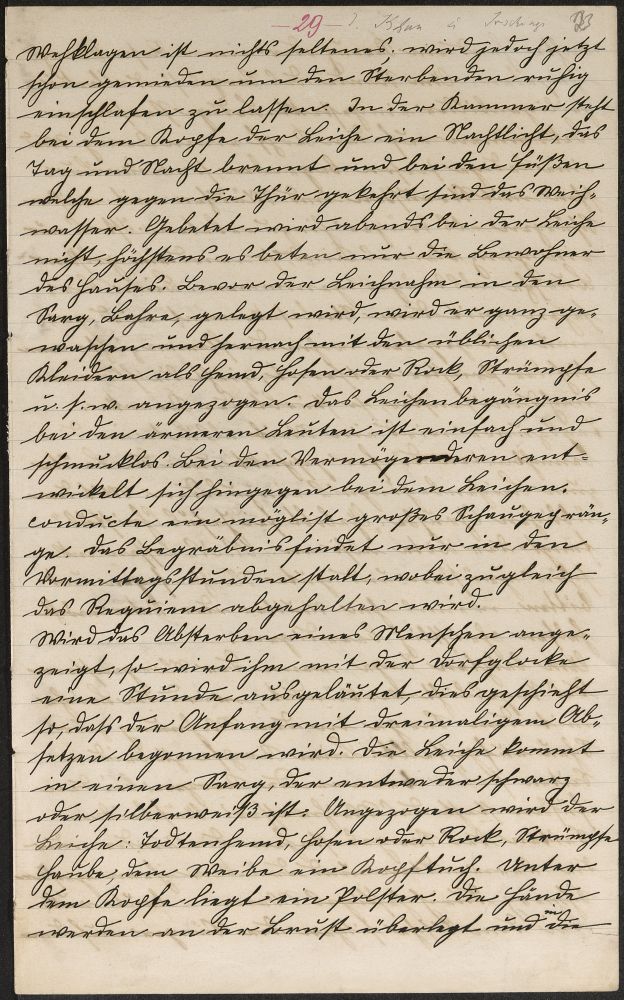 - 29 -
Wehklagen ist nichts seltenes. wird jedoch jetzt
schon gemieden um den Sterbenden ruhig
einschlafen zu lassen. In der Kammer steht
bei dem Kopfe der Leiche ein Nachtlicht, das
Tag und Nacht brennt und bei den Füßen
welche gegen die Thür gekehrt sind das Weih-
wasser. Gebetet wird abends bei der Leiche
nicht, höchstens es beten nur die Bewohner
des Hauses. Bevor der Leichnahm in den
Sarg, Bahre, gelegt wird, wird er ganz ge-
waschen und hernach mit den üblichen
Kleidern als Hemd, Hosen oder Rock, Strümpfe
u. s. w. angezogen. Das Leichenbegängnis
bei den ärmeren Leuten ist einfach und
schmucklos. Bei den Vermögenderen ent-
wickelt sich hingegen bei dem Leichen-
conducte ein möglist großes Schaugeprän-
ge. Das Begräbnis findet nur in den
Vormittagsstunden statt, wobei zugleich
das Requiem abgehalten wird.
Wird das Absterben eines Menschen ange-
zeigt, so wird ihm mit der Dorfglocke
eine Stunde ausgeläutet, dies geschieht
so, dass der Anfang mit dreimaligem Ab-
setzen begonnen wird. Die Leiche kommt
in einen Sarg, der entweder schwarz
oder silberweiß ist. Angezogen wird der
Leiche: Todtenhemd, Hosen oder Rock, Strümpfe
Haube, dem Weibe ein Kopftuch. Unter
dem Kopfe liegt ein Polster. Die Hände
werden an der Brust überlegt und in die